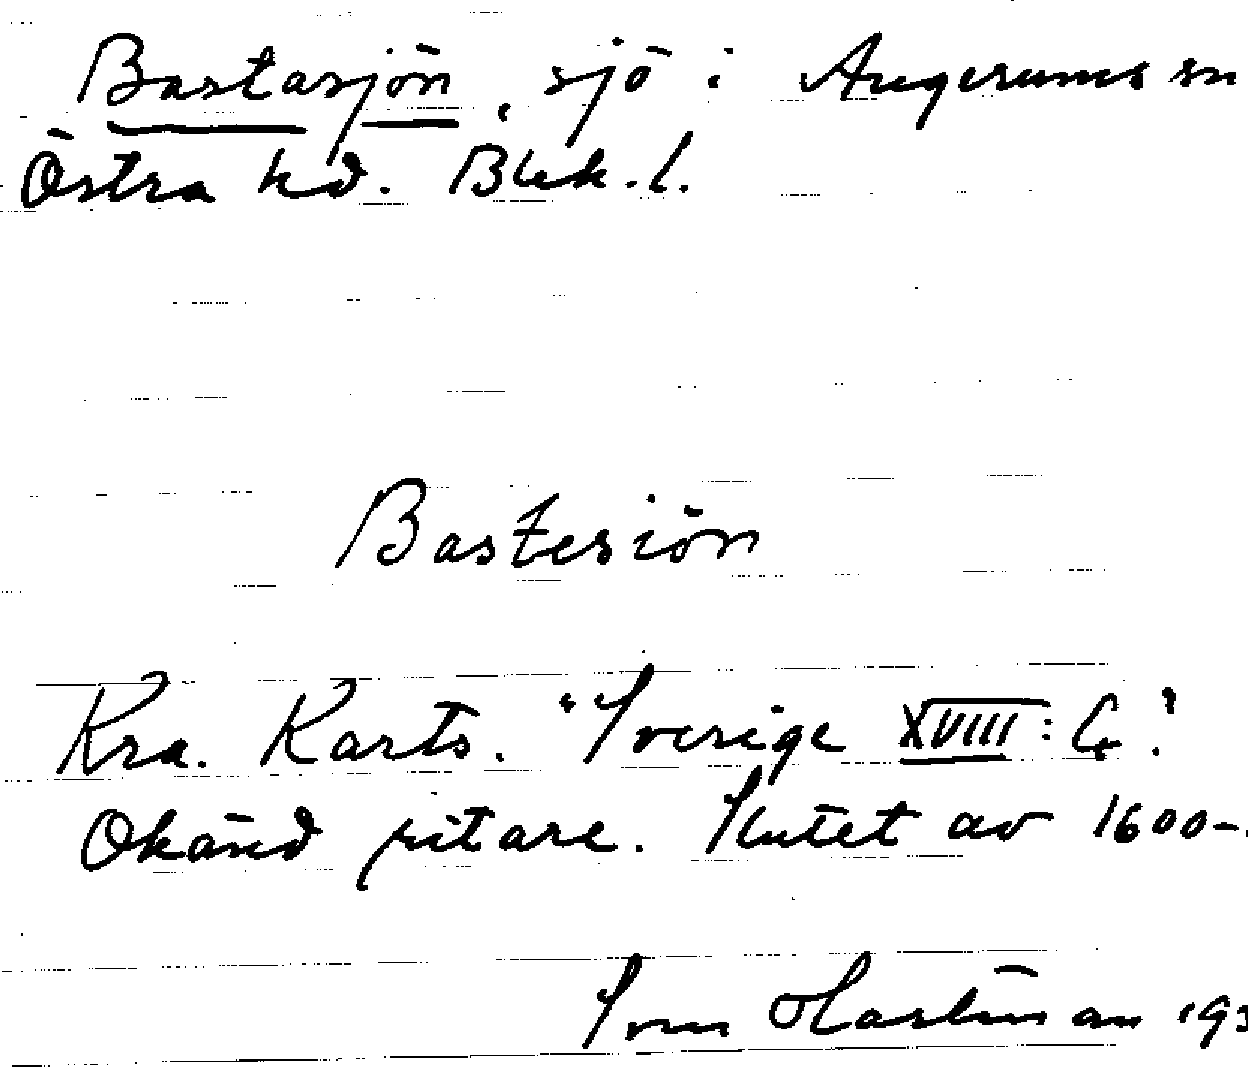 Bastasjön, sjö i Augerums sn
Östra hd. Blek. l.
Bastesiön
Kra. Karts. "Sverige XVIII: 6."
Okänd ritare. Slutet av 1600-
Sven Hartman 193